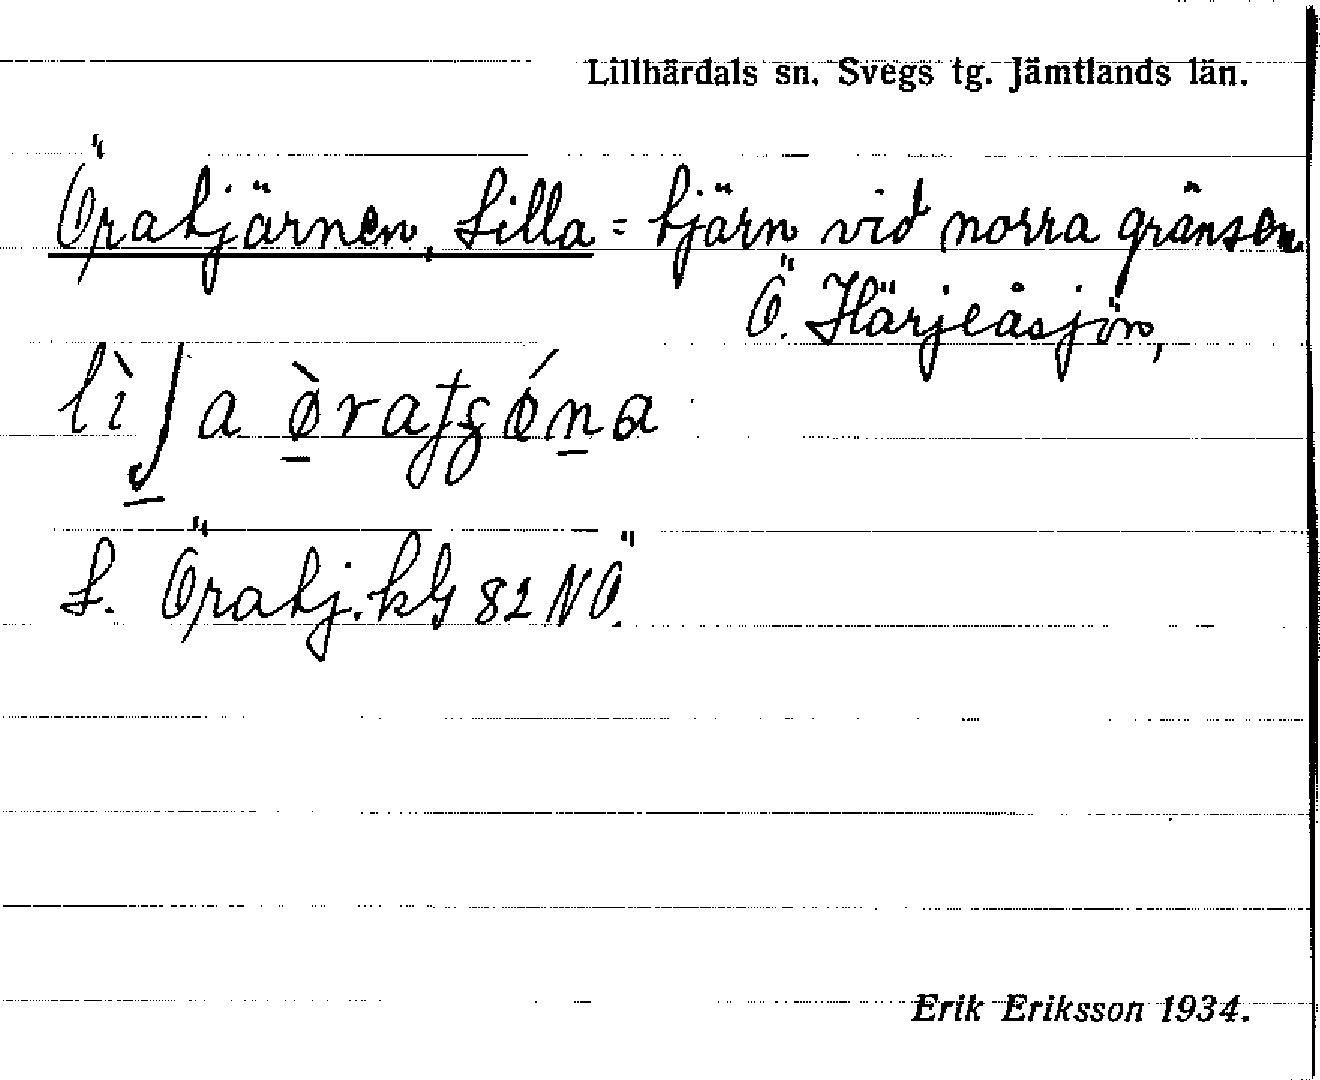 Lillhärdals sn. Svegs tg. Jämtlands län.
Öratjärnen, Lilla = tjärn vid norra gränsen.
Ö. Härjeåsjön,
L. Öratj. kG 82 NÖ.
Erik Eriksson 1934.